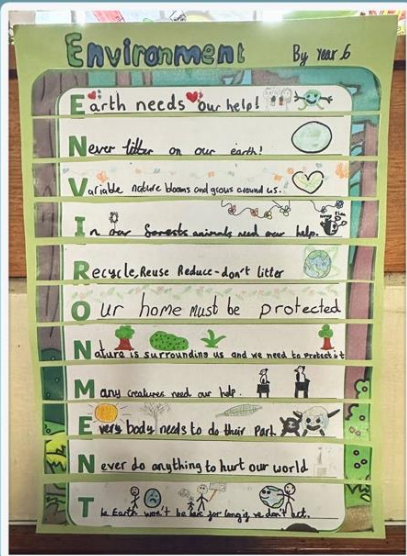 Environment
By Year 6
Earth needs our help!
Never litter on our earth!
Variable nature blooms and grows around us.
In our forests animals need our help.
Recycle, Reuse Reduce-don't litter
Our home must be protected
Nature is surrounding us and we need to protect it
Many creatures need our help.
Every body needs to do their part.
Never do anything to hurt our world
The Earth won't be here for long if we don't act.